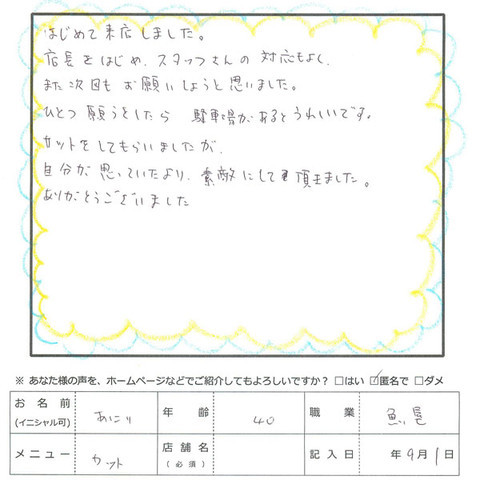 はじめて来店しました。
店長をはじめ、スタッフさんの対応もよく、
また次回もお願いしようと思いました。
ひとつ願うとしたら 駐車場があるとうれしいです。
カットをしてもらいましたが、
自分が思っていたより、素敵にして頂きました。
ありがとうございました
※ あなた様の声を、ホームページなどでご紹介してもよろしいですか？ □はい ☑匿名で □ダメ
お名前 (イニシャル可) あにり 年齢 40 職業 魚屋
メニュー カット 店舗名 (必須) 記入日 年9月1日